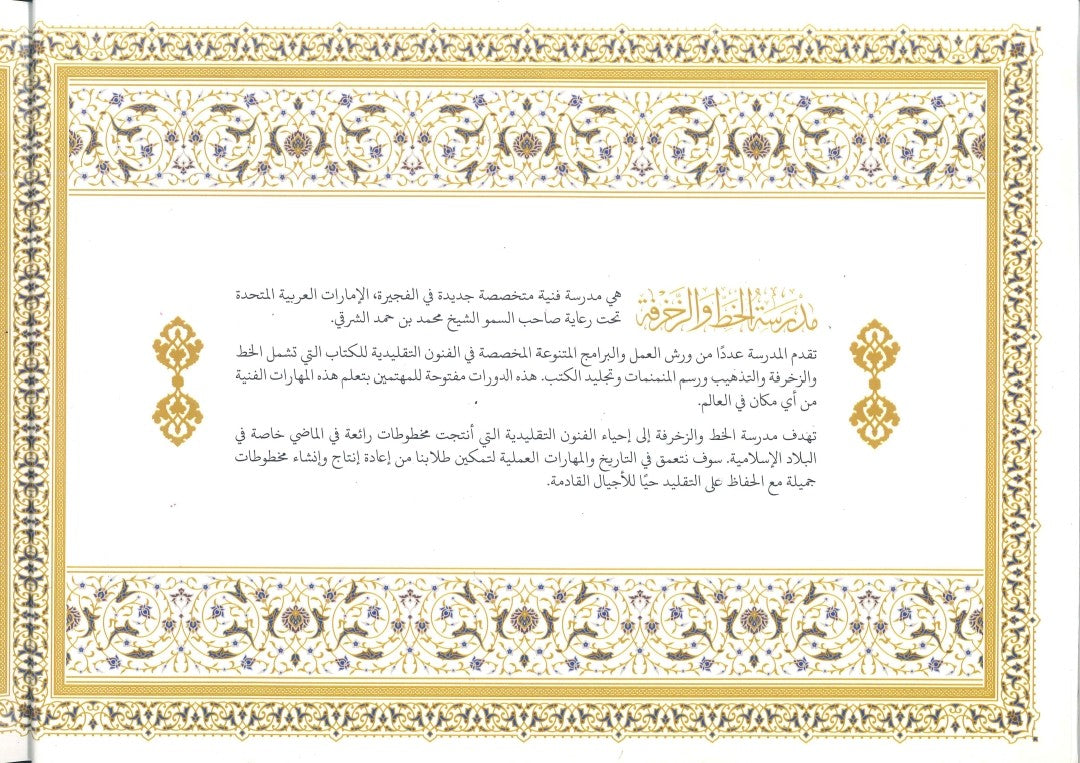 مدرسة الخط والزخرفة هي مدرسة فنية متخصصة جديدة في الفجيرة، الإمارات العربية المتحدة
تحت رعاية صاحب السمو الشيخ محمد بن حمد الشرقي.
تقدم المدرسة عددًا من ورش العمل والبرامج المتنوعة المخصصة في الفنون التقليدية للكتاب التي تشمل الخط
والزخرفة والتذهيب ورسم المنمنمات وتجليد الكتب. هذه الدورات مفتوحة للمهتمين بتعلم هذه المهارات الفنية
من أي مكان في العالم.
تهدف مدرسة الخط والزخرفة إلى إحياء الفنون التقليدية التي أنتجت مخطوطات رائعة في الماضي خاصة في
البلاد الإسلامية. سوف نتعمق في التاريخ والمهارات العملية لتمكين طلابنا من إعادة إنتاج وإنشاء مخطوطات
جميلة مع الحفاظ على التقليد حيًا للأجيال القادمة.